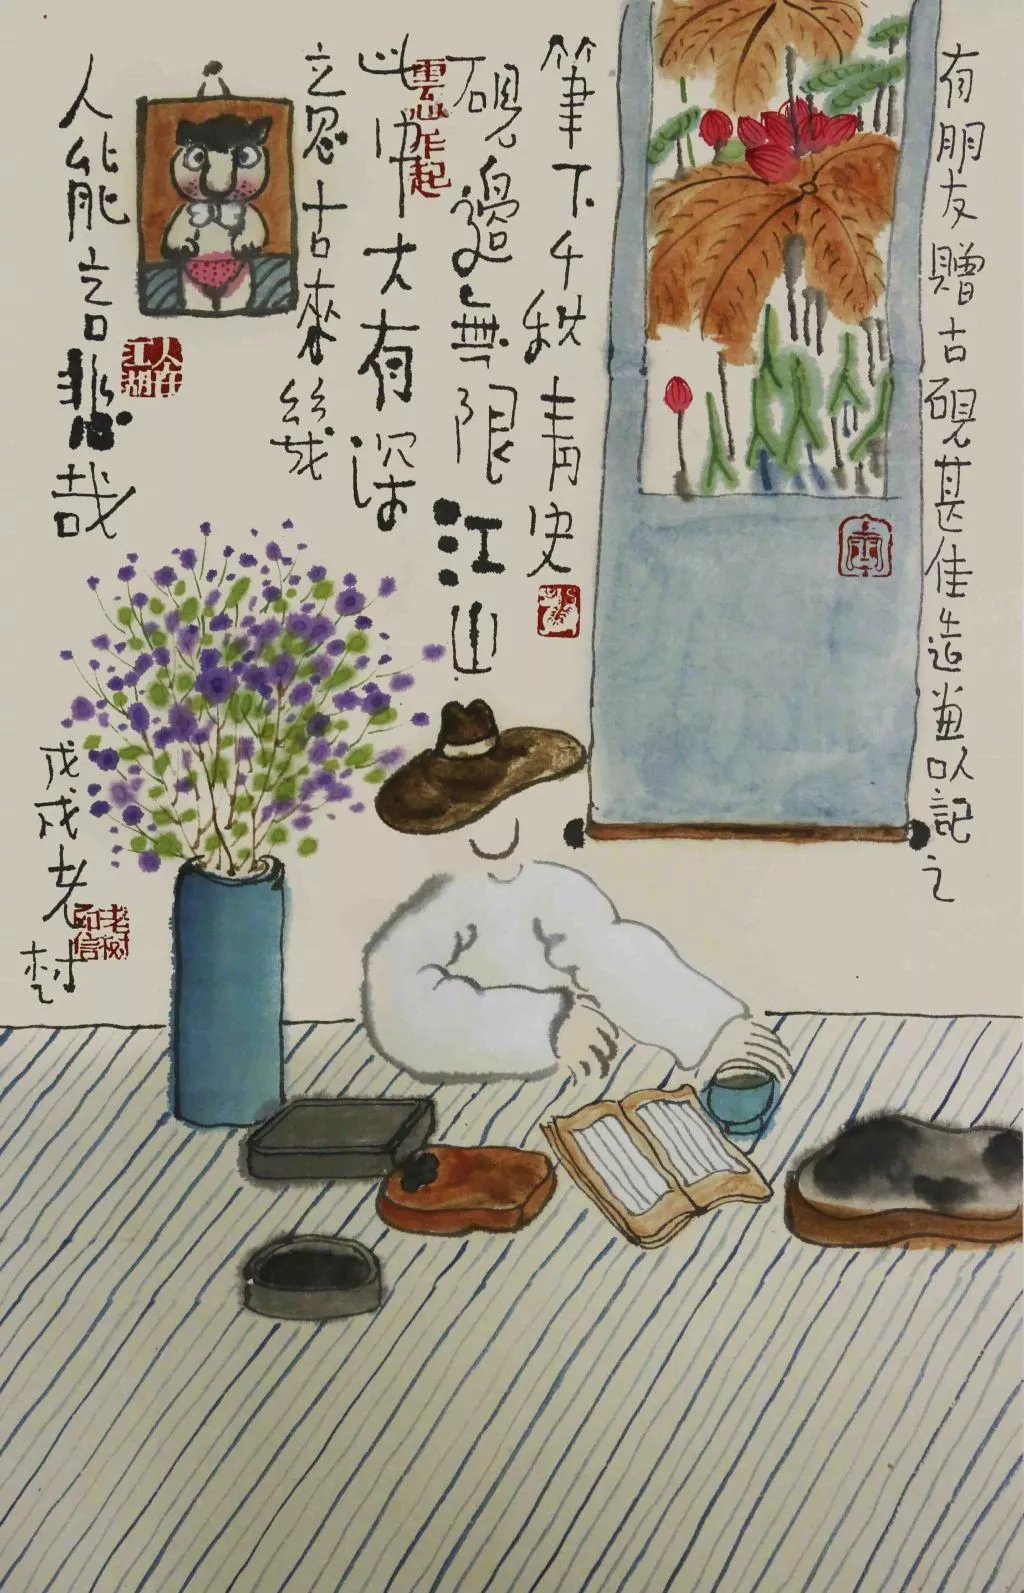 有朋友贈古硯甚佳造畫以記之
筆下千秋青史
硯邊無限江山
此中大有深
意古來幾
人能言悲哉
人在江湖
戊戌老樹
老树印信